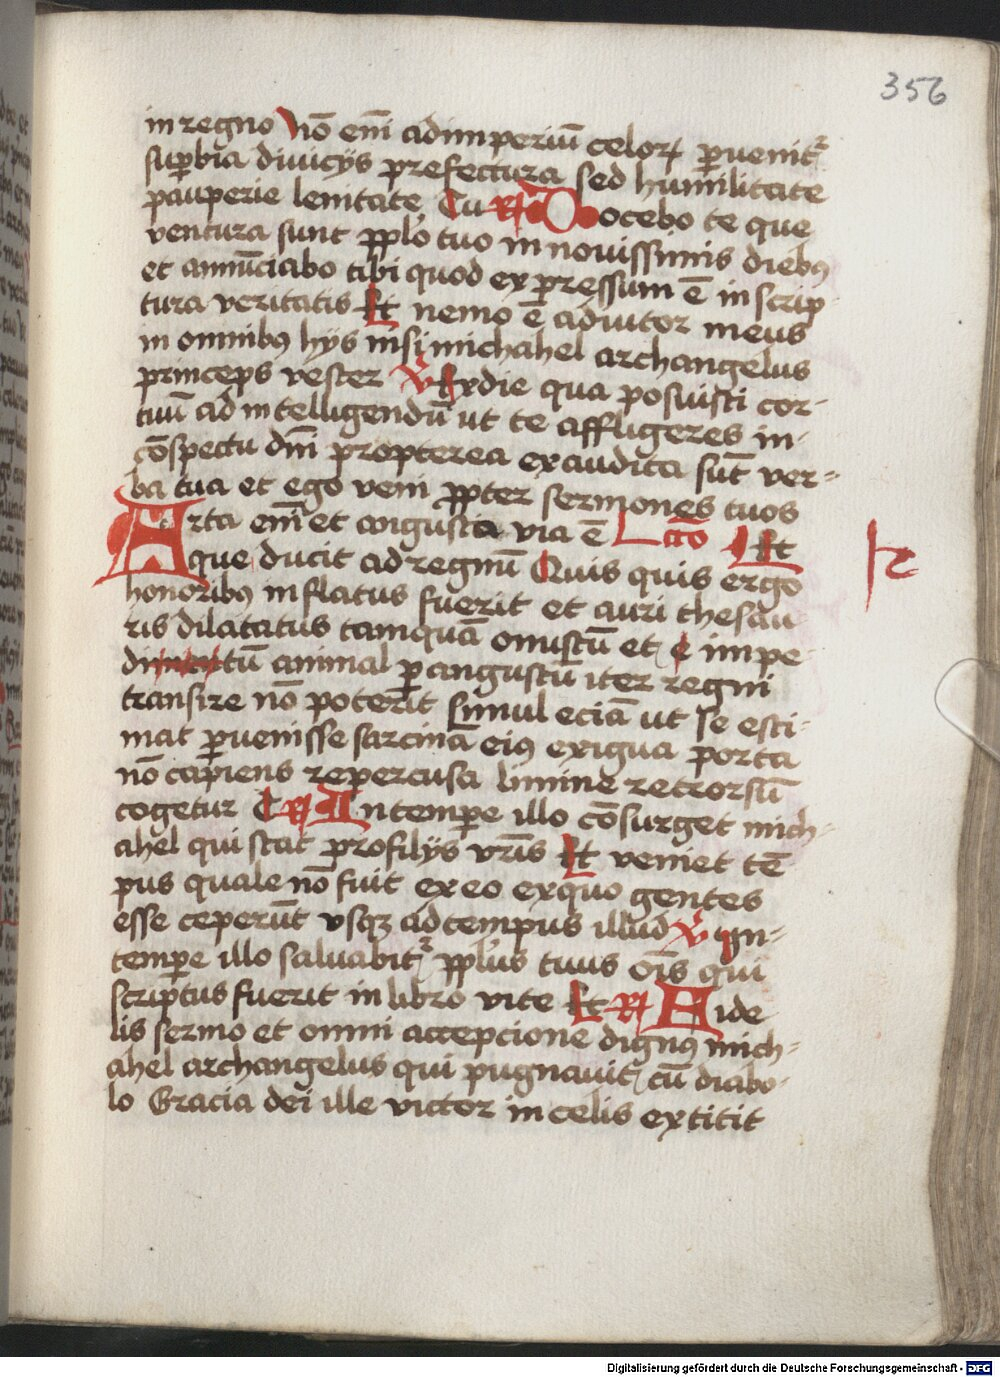 356
in regno Nō enī ad imperiū celoꝝ ꝑuenit᷑
suꝑbia diuicijs prefectura sed humilitate
pauperie lenitate Cu ℟ Docebo te que
ventura sunt ꝓplo tuo in nouissimis diebꝰ
et annūciabo tibi quod expressum ē in scrip
tura veritatis Et nemo ē adiutor meus
in omnibꝰ hijs nisi michahel archangelus
princeps vester ℣ Ex die qua posuisti cor-
tuū ad intelligendū ut te affligeres in-
cōspectu dnī propterea exaudita sūt ver-
ba tua et ego veni ꝓpter sermones tuos
Arta enī et angusta via ē Lcō Et
que ducit ad regnū Quis quis ergo
honoribꝰ inflatus fuerit et auri thesau
ris dilatatus tamquā onustū et impe
ditū animal ꝑ angustū iter regni
transire nō poterit Simul eciā ut se esti-
mat ꝑuenisse sarcinā eiꝰ exigua porta
nō capiens repercusa limine retrorsū
cogetur C ℟ In tempe illo cōsurget mich-
ahel qui stat pro filijs vrīs Et veniet tē
pus quale nō fuit ex eo ex quo gentes
esse ceperūt vsqꝫ ad tempus illud ℣ In-
tempe illo saluabit᷑ ꝓplus tuus oīs qui
scriptus fuerit in libro vite Et ℟ Fide
lis sermo et omni accepcione dignꝰ mich-
ahel archangelus qui pugnauit cū diabo-
lo Gracia dei ille victor in celis extitit
Digitalisierung gefördert durch die Deutsche Forschungsgemeinschaft - DFG